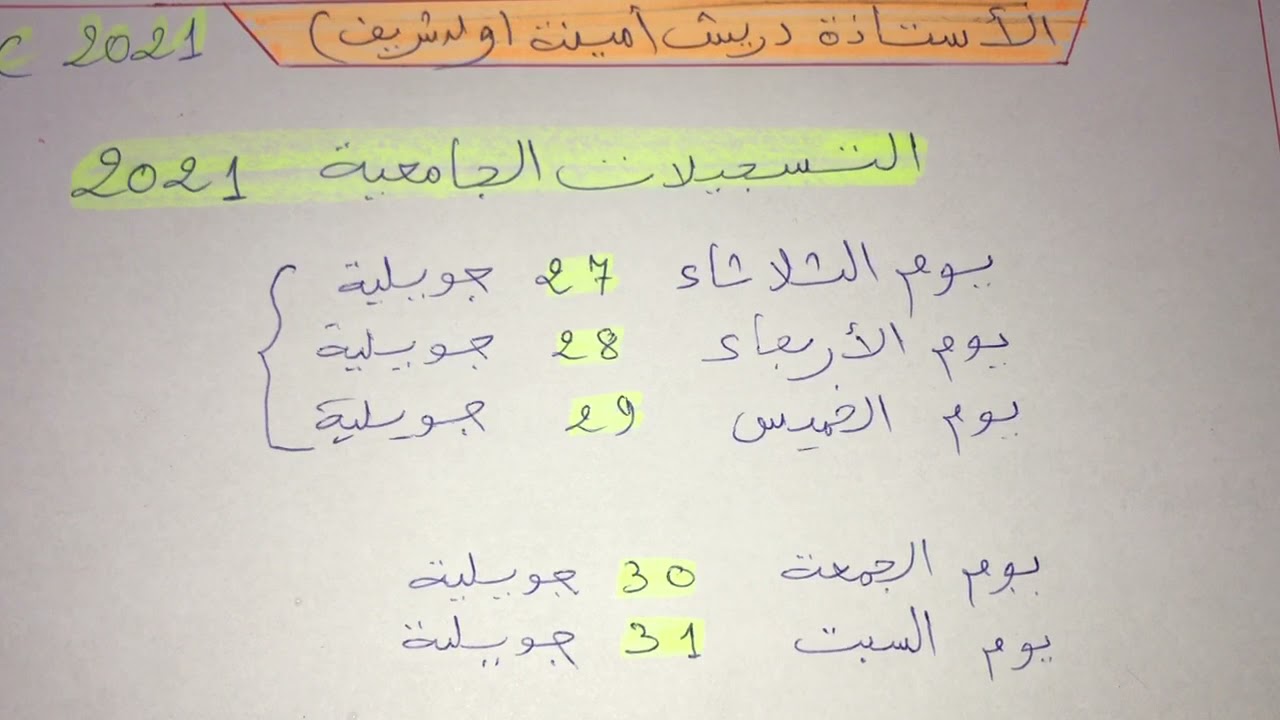 الأستاذة دريش أمينة (اولدشريف)
2021
التسجيلات الجامعية 2021
يوم الثلاثاء 27 جويلية
يوم الأربعاء 28 جويلية
يوم الخميس 29 جويلية
يوم الجمعة 30 جويلية
يوم السبت 31 جويلية